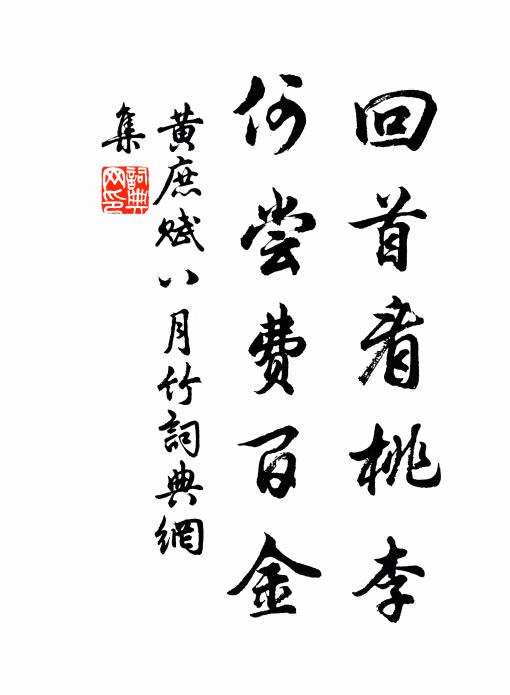 回首看桃李
何尝费百金
黄庶赋八月竹詞典網
集
詞典
网印